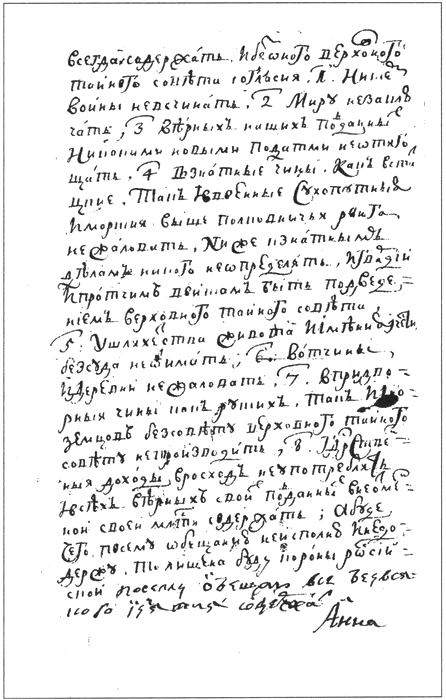 всегда содержатъ, и без оного верховного
тайного совѣта согласия, 1. Ни с кем
войны невсчинатъ, 2 Миру незаклю
чатъ, 3 вѣрныхъ нашихъ подданных
никакими новыми податми неотяго
щатъ, 4 Взнатные чины, какъ встат
цкие, такъ ивоенные Сухопутныя
Иморския выше полковничья ранга
нежаловать, ниже кзнатнымъ
дѣламъ никого неопределятъ, и гвардии
Ипротчимъ войскам быть подведе=
ниемъ верховного тайного совѣта
5. Ушляхетства живота Иимѣния ичести
безсуда неотиматъ; 6. вотчины,
Идеревни нежаловатъ, 7. впридво=
рныя чины какъ рускихъ, такъ Иино=
земцовъ безсовѣту верховного тайного
совѣту непроизводить, 8. Гдрствен=
ныя доходы вросходъ неупотреблять
Ивсѣхъ вѣрныхъ своих подданных внеотмен=
ной своей млсти содержатъ; Абуде
чего посему обещанию неисполню Инедо=
держу, то лишена буду короны росий=
ской посему обещаю все безвся=
кого содержать
Анна